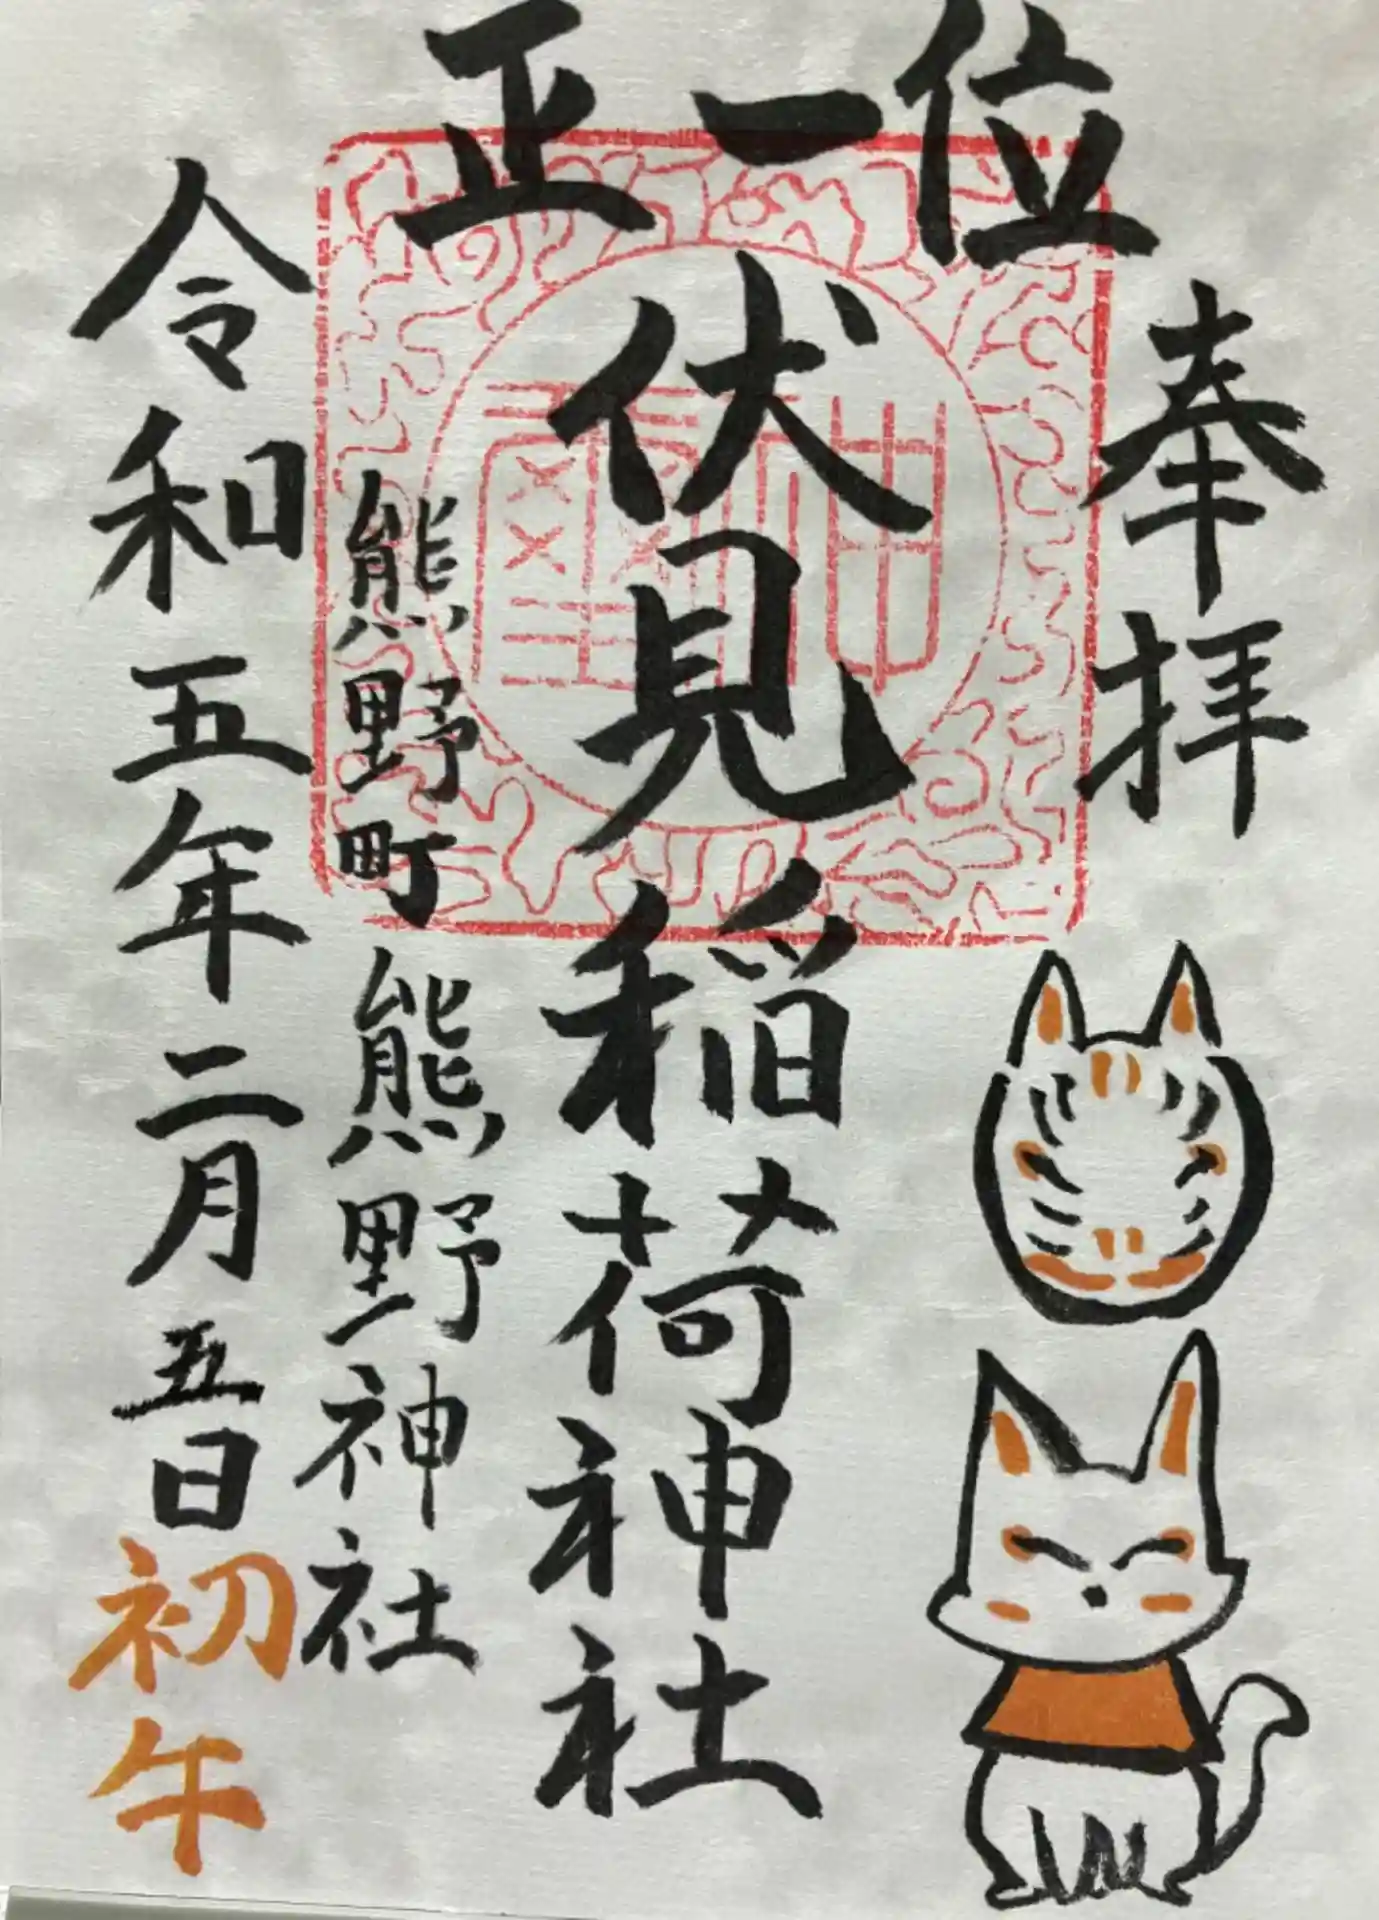 正一位
奉拝
伏見稲荷神社
熊野町 熊野神社
令和五年二月五日初午